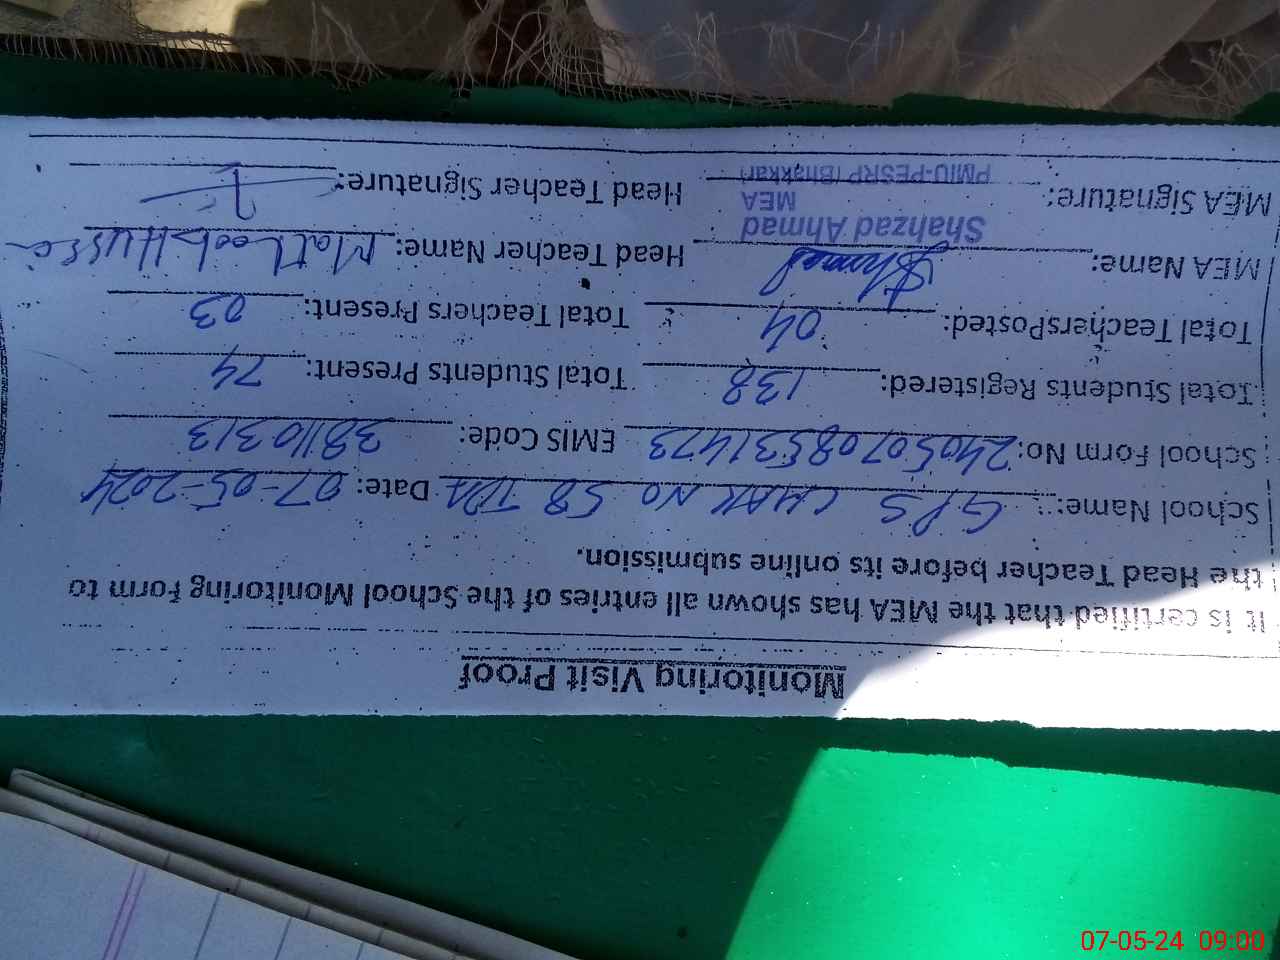 Monitoring Visit Proof
It is certified that the MEA has shown all entries of the School Monitoring Form to
the Head Teacher before its online submission.
School Name: GPS CHAK NO 58 TDA Date: 07-05-2024
School Form No: 24050708531473 EMIS Code: 38110313
Total Students Registered: 138 Total Students Present: 74
Total TeachersPosted: 04 Total Teachers Present: 03
MEA Name: Head Teacher Name: Matloob Hussain
Shahzad Ahmad
MEA
PMIU-PESRP (Bhakkar)
MEA Signature: Head Teacher Signature:
07-05-24 09:00